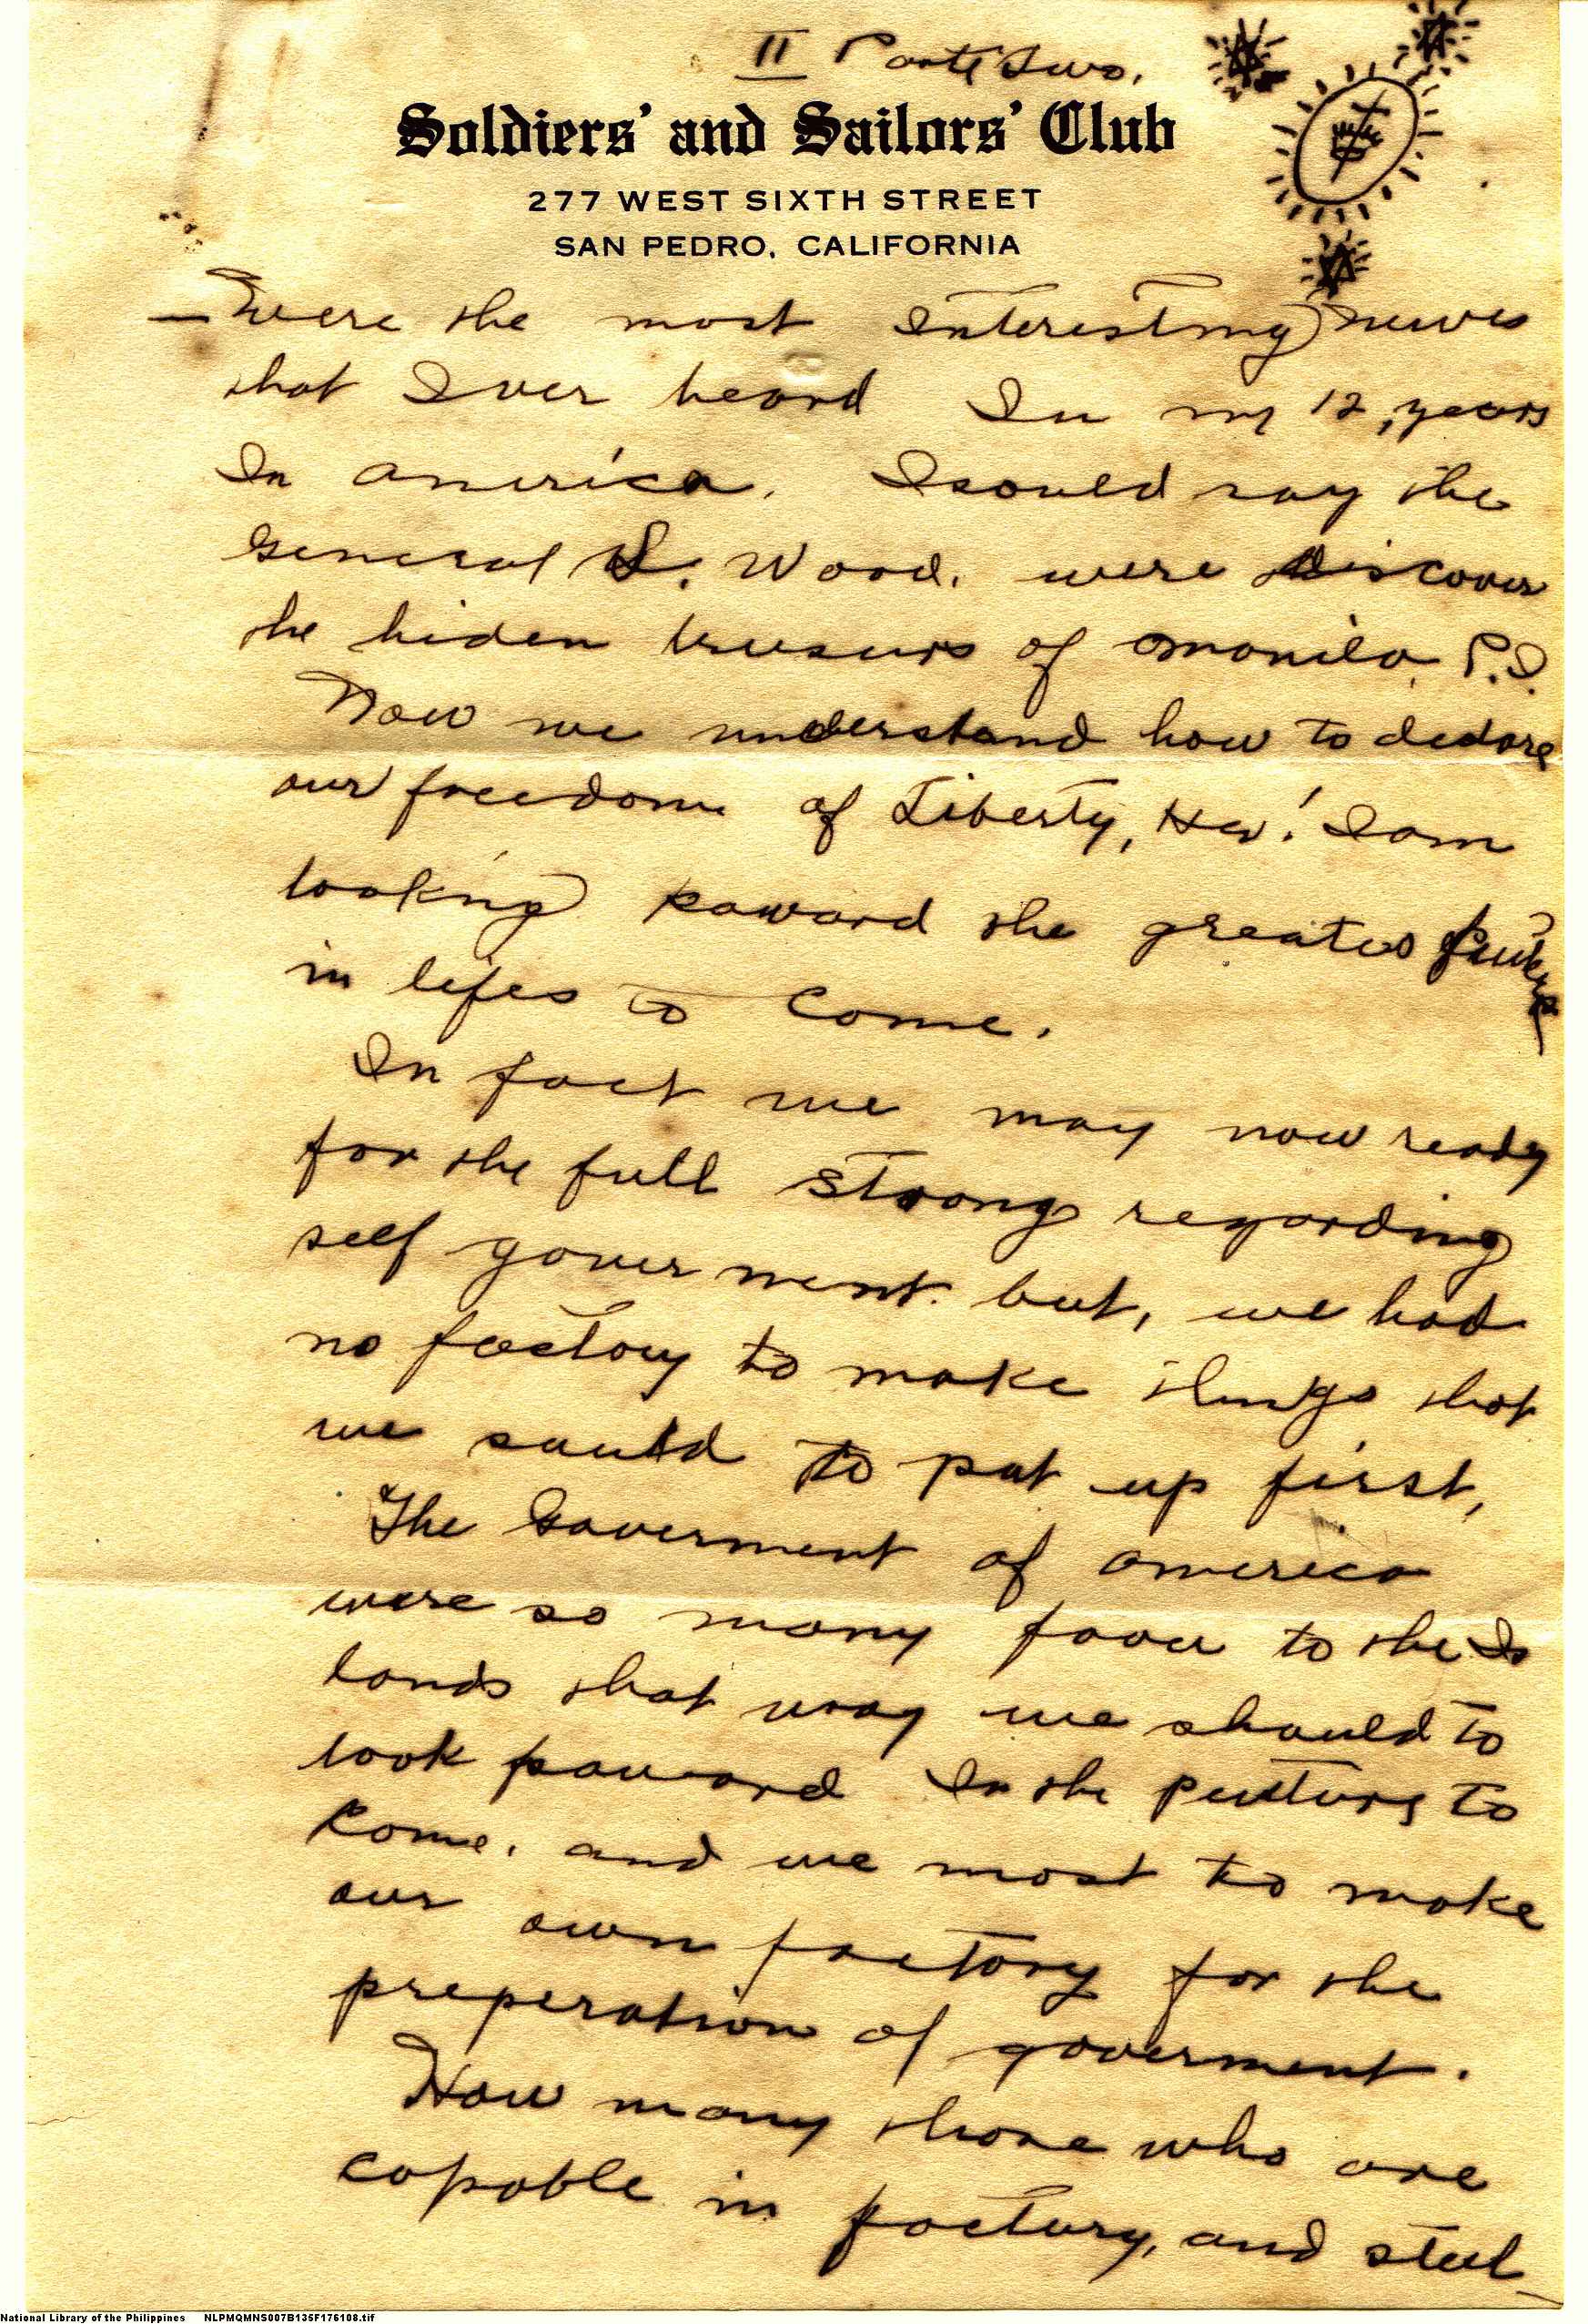 II Parte Two.
Soldiers' and Sailors' Club
277 WEST SIXTH STREET
SAN PEDRO, CALIFORNIA
— were the most Interesting news
that I ver heard In my 12, years
In america. I sould say the
General L. Wood. were discover
the hiden of manila P.I.
Now we understand how to declare
our freedom of Liberty, I am
looking the greates
in lifes to Come.
In fact we may now ready
for the full strong regarding
self goverment. but, we had
no factory to make things that
we sould to put up first,
The Goverment of america
were so many favor to the Is
lands that way we should to
look In the to
Come. and we most to make
our own factory for the
preperation of goverment.
How many those who are
capable in factury, and steel
National Library of the Philippines NLPMQMNS007B135F176108.tif